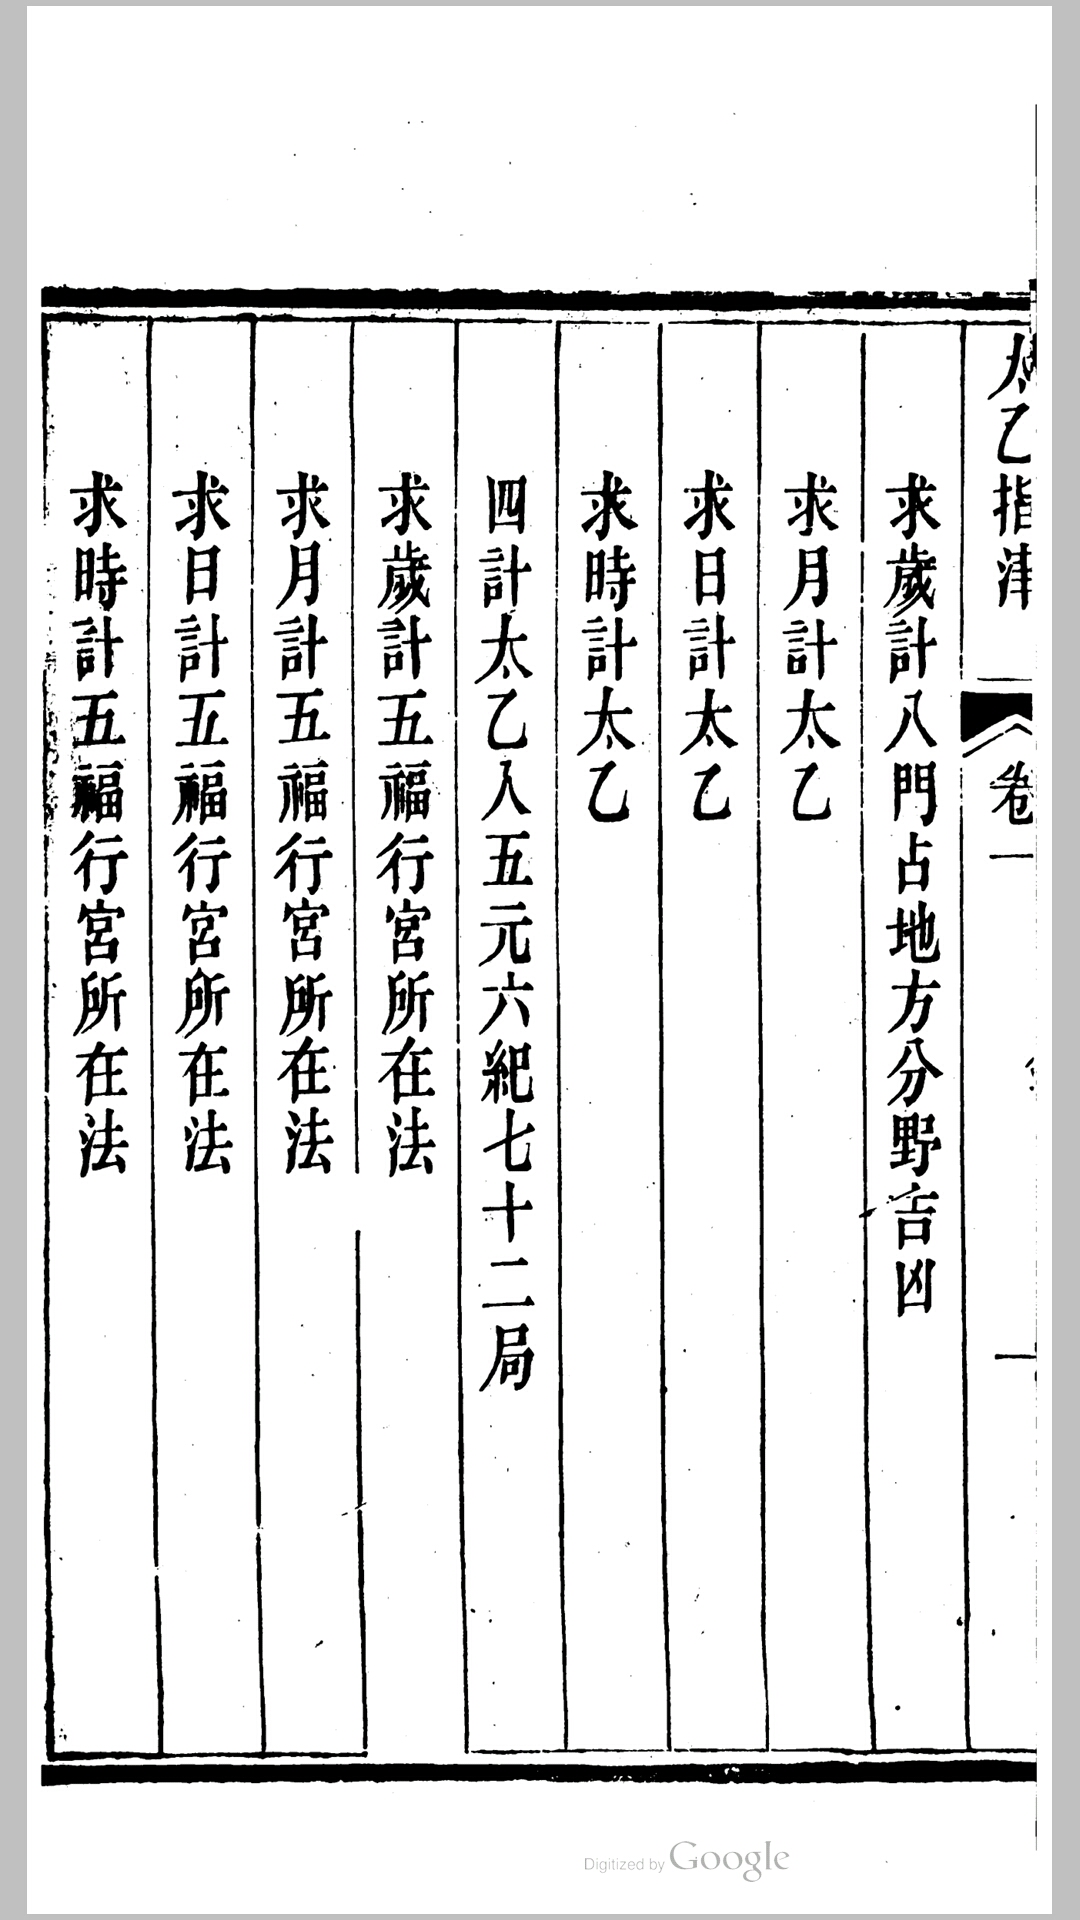 太乙指津 卷一 一
求歲計八門占地方分野吉凶
求月計太乙
求日計太乙
求時計太乙
四計太乙入五元六紀七十二局
求歲計五福行宮所在法
求月計五福行宮所在法
求日計五福行宮所在法
求時計五福行宮所在法
Digitized by Google